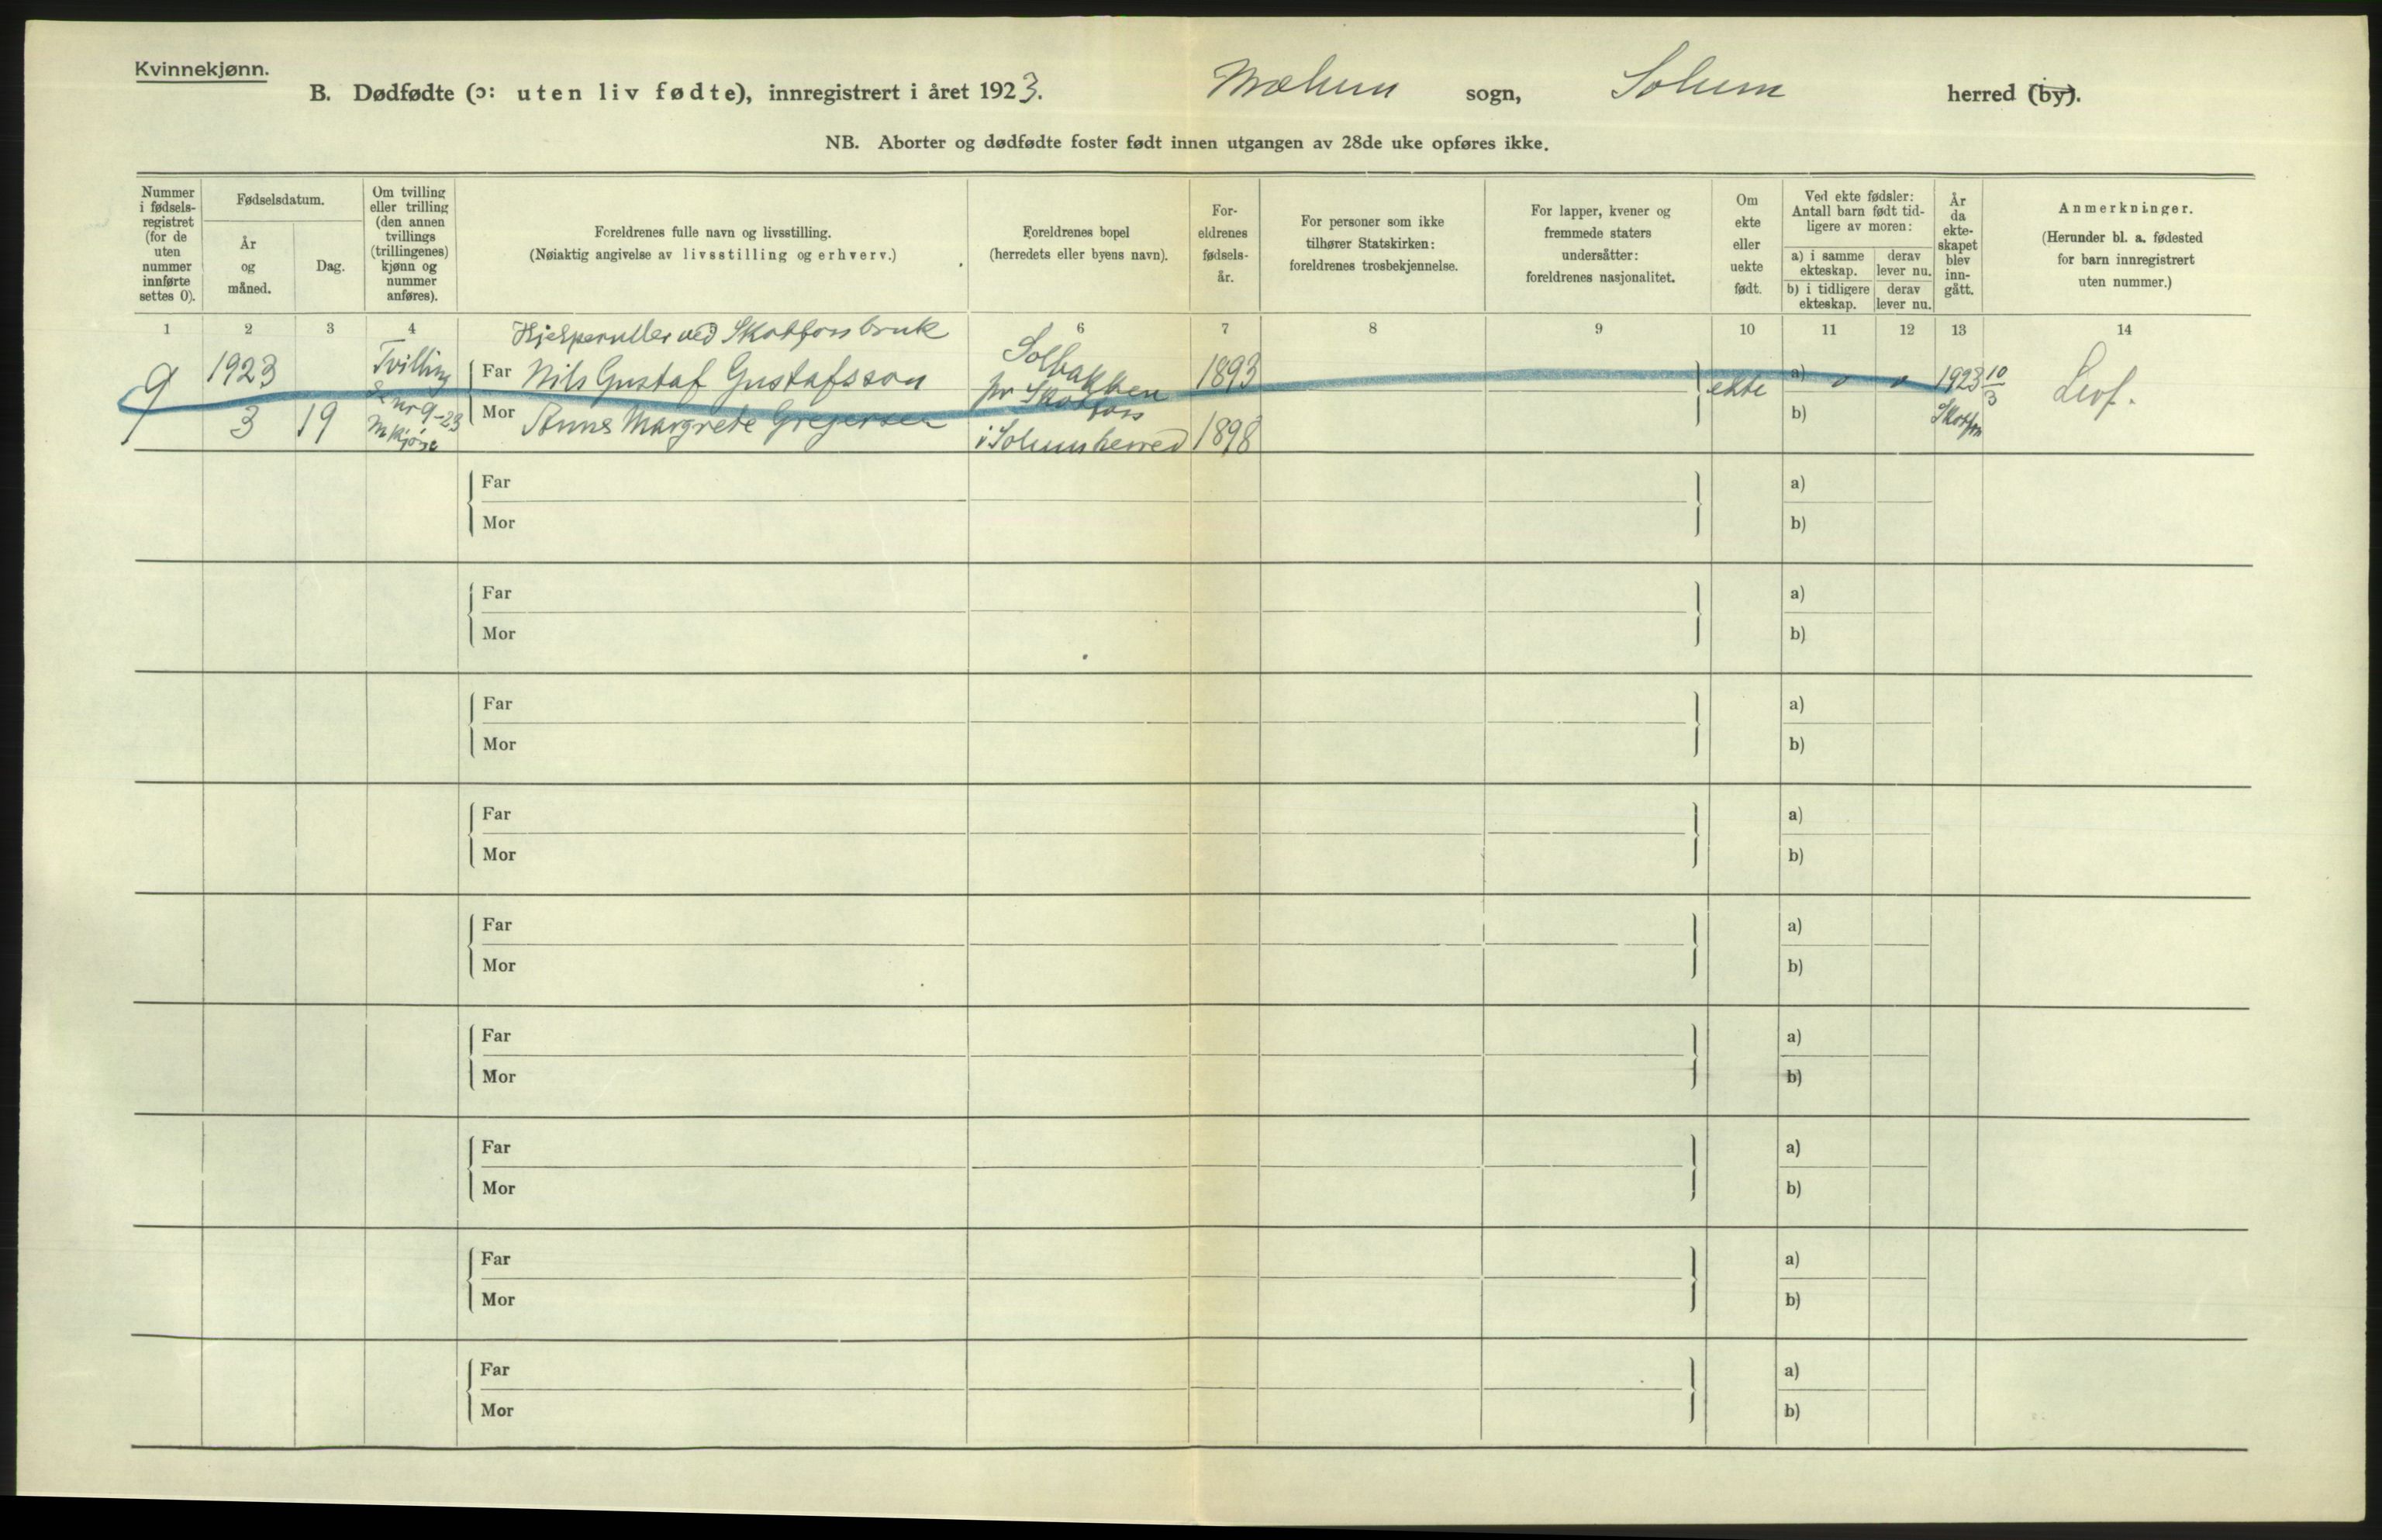 Kvinnekjønn.
B. Dødfødte (ɔ: uten liv fødte), innregistrert i året 1923. Mælum sogn, Solum herred (by).
NB. Aborter og dødfødte foster født innen utgangen av 28de uke opføres ikke.
Nummer i fødsels- registret (for de uten nummer innførte settes 0).
Fødselsdatum.
År og måned.
Dag.
Om tvilling eller trilling (den annen tvillings (trillingenes) kjønn og nummer anføres).
Foreldrenes fulle navn og livsstilling.
(Nøiaktig angivelse av livsstilling og erhverv.)
Foreldrenes bopel
(herredets eller byens navn).
For- eldrenes fødsels- år.
For personer som ikke tilhører Statskirken: foreldrenes trosbekjennelse.
For lapper, kvener og fremmede staters undersåtter: foreldrenes nasjonalitet.
Om ekte eller uekte født.
Ved ekte fødsler: Antall barn født tid- ligere av moren:
a) i samme ekteskap. derav lever nu.
b) i tidligere ekteskap. derav lever nu.
År da ekte- skapet blev inn- gått.
Anmerkninger.
(Herunder bl. a. fødested for barn innregistrert uten nummer.)
1 2 3 4 6 7 8 9 10 11 12 13 14
Hjelperuller ved Skotfoss bruk
9 1923 3 19
Tvilling
nr 9-23
m kjøn
Far Nils Gustaf Gustafsson
Mor Anne Margrete Gregersen
Solbakken
pr Skotfoss
i Solum herred
1893
1898
ekte
a) 0 0
b)
1923 10/3
Skotfoss
Far a)
Mor b)
Far a)
Mor b)
Far a)
Mor b)
Far a)
Mor b)
Far a)
Mor b)
Far a)
Mor b)
Far a)
Mor b)
Far a)
Mor b)
Far a)
Mor b)